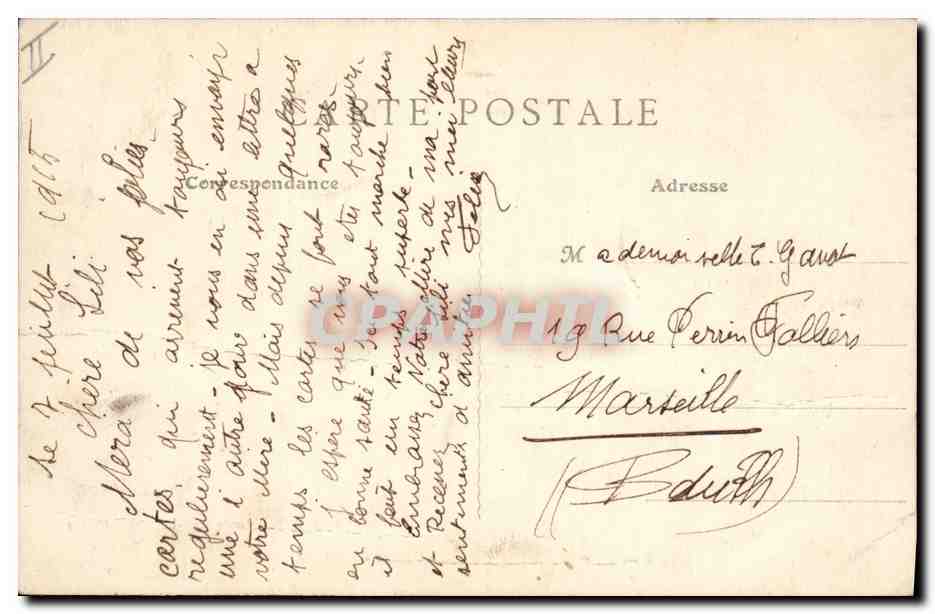 II
CARTE POSTALE
Correspondance
Adresse
le 7 juillet 1915
Chere Lili
Merci de vos jolies
cartes, qui arrivent toujours
regulierement - je vous en ai envoyé
une l'autre jour dans une lettre a
votre Mere - Mais depuis quelques
temps les cartes se font rares -
J'espere que vous etes toujours
en bonne santé - ici tout marche bien
il fait un temps superbe -
Embrassez Votre Mere de ma part
et Recevez chere Lili mes meilleurs
sentiments d'amitié
Felix
Mademoiselle E. Gavot
19 Rue Perrin Solliers
Marseille
(BduRh)
CPAPHIL